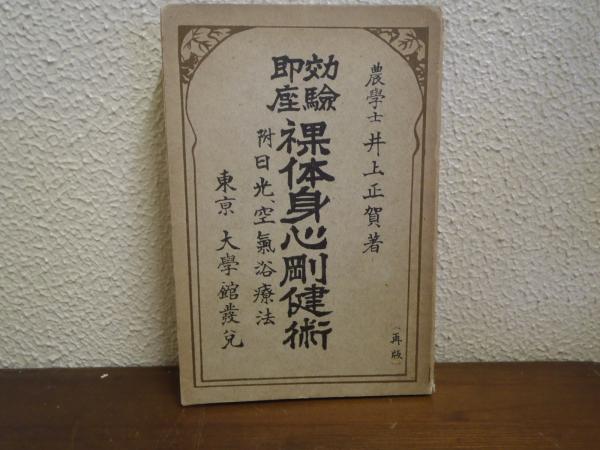 農學士 井上正賀著
効驗
即座
裸体身心剛健術
附日光、空氣浴療法
東京 大學館發兌
(再版)